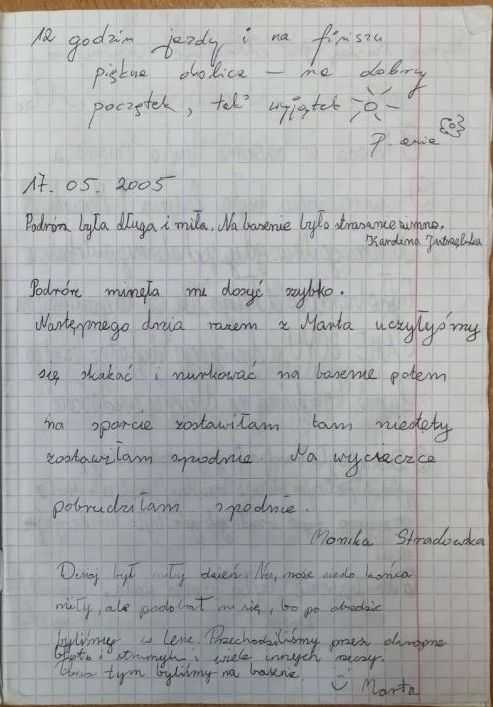 12 godzin jazdy i na finiszu
piękna okolica – na dobry
początek, tak wyjątek
P. ania
17. 05. 2005
Podróż była długa i miła. Na basenie było strasznie zimno.
Karolina
Podróż minęła mi dosyć szybko.
Następnego dnia razem z Marta uczyłyśmy
się skakać i nurkować na basenie potem
na sporcie zostawiłam tam niestety
zostawiłam spodnie Na wycieczce
pobrudziłam spodnie.
Monika Stradowska
Dzisiaj był miły dzień. No, może nie do końca
miły, ale podobał mi się, bo po obiedzie
byliśmy w lesie. Przechodziliśmy przez
błoto i strumyk i wiele innych rzeczy.
tym byliśmy na basenie.
Marta